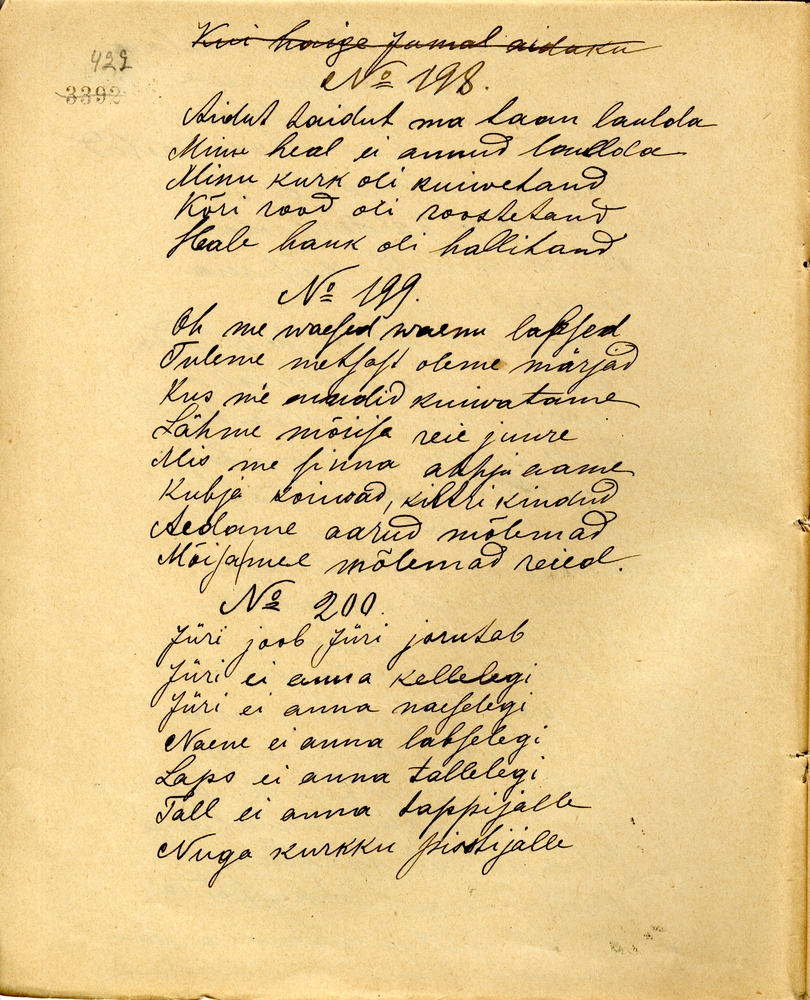 Kui haige Jumal aidaku
422
3392
No 198.
Aidut taidut ma taan laulda
Minu heal ei annud laulda
Minu kurk oli kuiwetand
Kõri rood oli roostetand
Heale hauk oli hallitand
No 199.
Oh me waesed waenu lapsed
Tuleme metsast oleme märjad
Kus me nuudid kuiwatame
Lähme mõisa reie juure
Mis me sinna ahju aame
Kubja toiwad, kiltri kindud
Aedame aarud mõlemad
Mõisamee mõlemad reied.
No 200.
Jüri joob, Jüri jorutab
Jüri ei anna kellelegi
Jüri ei anna naeselegi
Naene ei anna labselegi
Laps ei anna tallelegi
Tall ei anna tappijalle
Nuga kurkku pistijalle